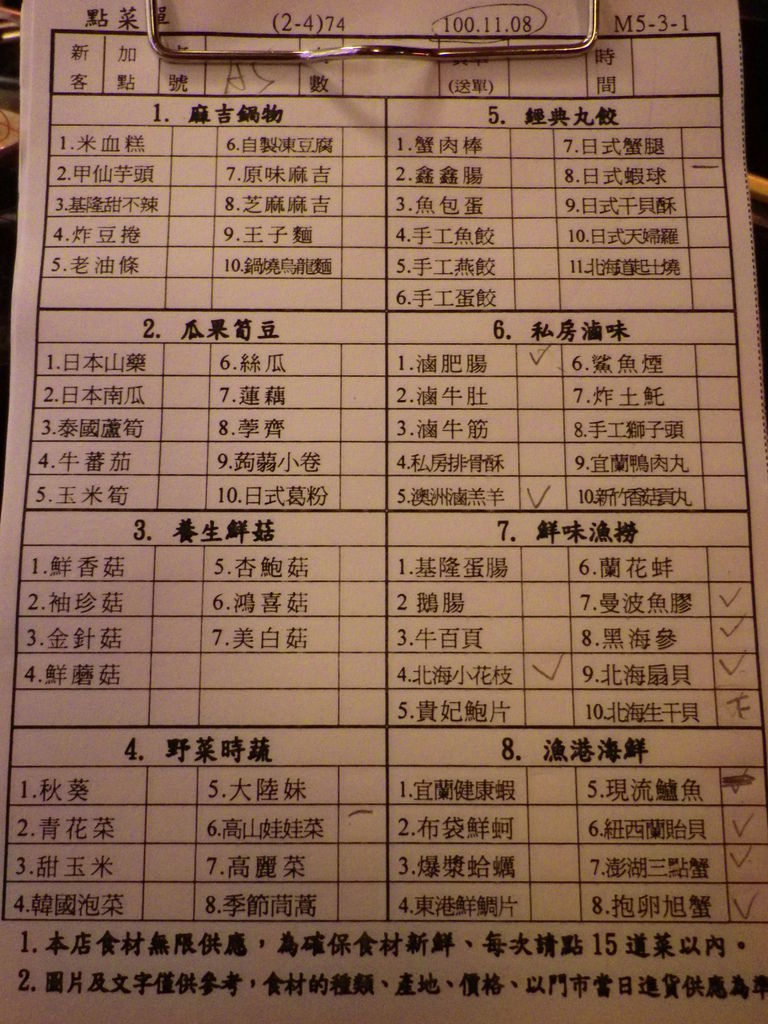 點菜單 (2-4)74 100.11.08 M5-3-1
新客 加點 號 A5 數 (送單) 時間
1. 麻吉鍋物
1.米血糕 6.自製凍豆腐
2.甲仙芋頭 7.原味麻吉
3.基隆甜不辣 8.芝麻麻吉
4.炸豆捲 9.王子麵
5.老油條 10.鍋燒烏龍麵
5. 經典丸餃
1.蟹肉棒 7.日式蟹腿
2.鑫鑫腸 8.日式蝦球 一
3.魚包蛋 9.日式干貝酥
4.手工魚餃 10.日式天婦羅
5.手工燕餃 11.北海道起士燒
6.手工蛋餃
2. 瓜果筍豆
1.日本山藥 6.絲瓜
2.日本南瓜 7.蓮藕
3.泰國蘆筍 8.荸薺
4.牛蕃茄 9.蒟蒻小卷
5.玉米筍 10.日式葛粉
6. 私房滷味
1.滷肥腸 ✓ 6.鯊魚煙
2.滷牛肚 7.炸土魠
3.滷牛筋 8.手工獅子頭
4.私房排骨酥 9.宜蘭鴨肉丸
5.澳洲滷羔羊 ✓ 10.新竹香菇貢丸
3. 養生鮮菇
1.鮮香菇 5.杏鮑菇
2.袖珍菇 6.鴻喜菇
3.金針菇 7.美白菇
4.鮮蘑菇
7. 鮮味漁撈
1.基隆蛋腸 6.蘭花蚌
2 鵝腸 7.曼波魚膠 ✓
3.牛百頁 8.黑海參 ✓
4.北海小花枝 ✓ 9.北海扇貝 ✓
5.貴妃鮑片 10.北海生干貝
4. 野菜時蔬
1.秋葵 5.大陸妹
2.青花菜 6.高山娃娃菜 一
3.甜玉米 7.高麗菜
4.韓國泡菜 8.季節茼蒿
8. 漁港海鮮
1.宜蘭健康蝦 5.現流鱸魚
2.布袋鮮蚵 6.紐西蘭貽貝 ✓
3.爆漿蛤蠣 7.澎湖三點蟹 ✓
4.東港鮮鯛片 8.抱卵旭蟹 ✓
1.本店食材無限供應，為確保食材新鮮、每次請點15道菜以內。
2.圖片及文字僅供參考，食材的種類、產地、價格、以門市當日進貨供應為準